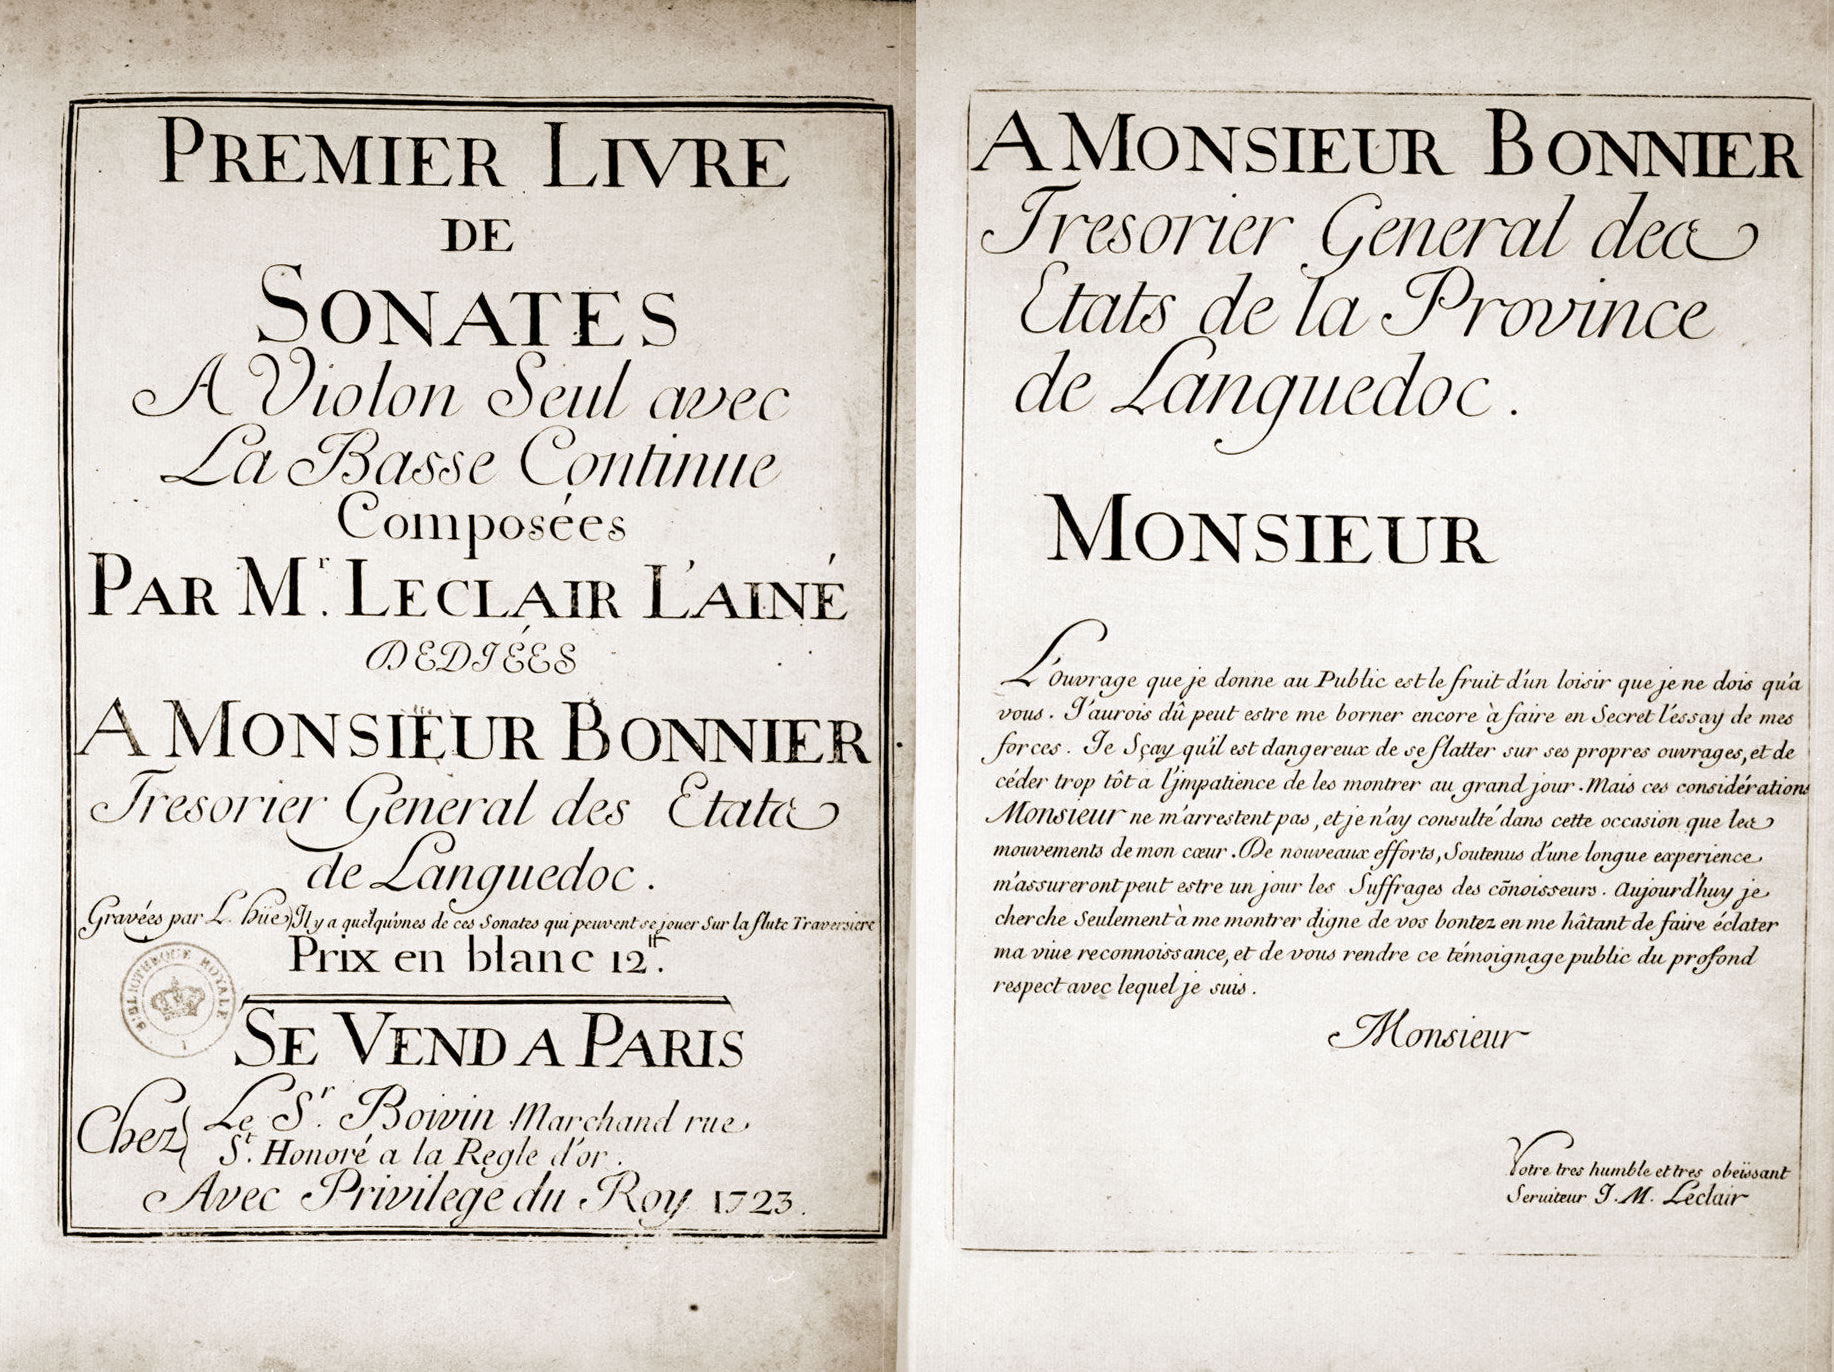 PREMIER LIVRE
DE
SONATES
A Violon Seul avec
La Basse Continue
Composées
PAR Mr. LECLAIR L'AINÉ
DEDIÉES
A MONSIEUR BONNIER
Tresorier General des Etats
de Languedoc.
Gravées par L. hüe) Il y a quelqu'vnes de ces Sonates qui peuvent se jouer Sur la flute Traversiere
Prix en blanc 12tt.
BIBLIOTHEQUE ROYALE
SE VEND A PARIS
Chez Le Sr. Boivin Marchand rue
St. Honoré a la Regle d'or.
Avec Privilege du Roy 1723.
A MONSIEUR BONNIER
Tresorier General des
Etats de la Province
de Languedoc.
MONSIEUR
L'ouvrage que je donne au Public est le fruit d'un loisir que je ne dois qu'a
vous. J'aurois dû peut estre me borner encore à faire en Secret l'essay de mes
forces. Je Sçay qu'il est dangereux de se flatter sur ses propres ouvrages, et de
céder trop tôt a l'jmpatience de les montrer au grand jour. Mais ces considérations
Monsieur ne m'arrestent pas, et je n'ay consulté dans cette occasion que les
mouvements de mon cœur. De nouveaux efforts, Soutenus d'une longue experience
m'assureront peut estre un jour les Suffrages des cõnoisseurs. Aujourd'huy je
cherche Seulement à me montrer digne de vos bontez en me hâtant de faire éclater
ma viue reconnoissance, et de vous rendre ce témoignage public du profond
respect avec lequel je suis.
Monsieur
Votre tres humble et tres obeïssant
Seruiteur J. M. Leclair